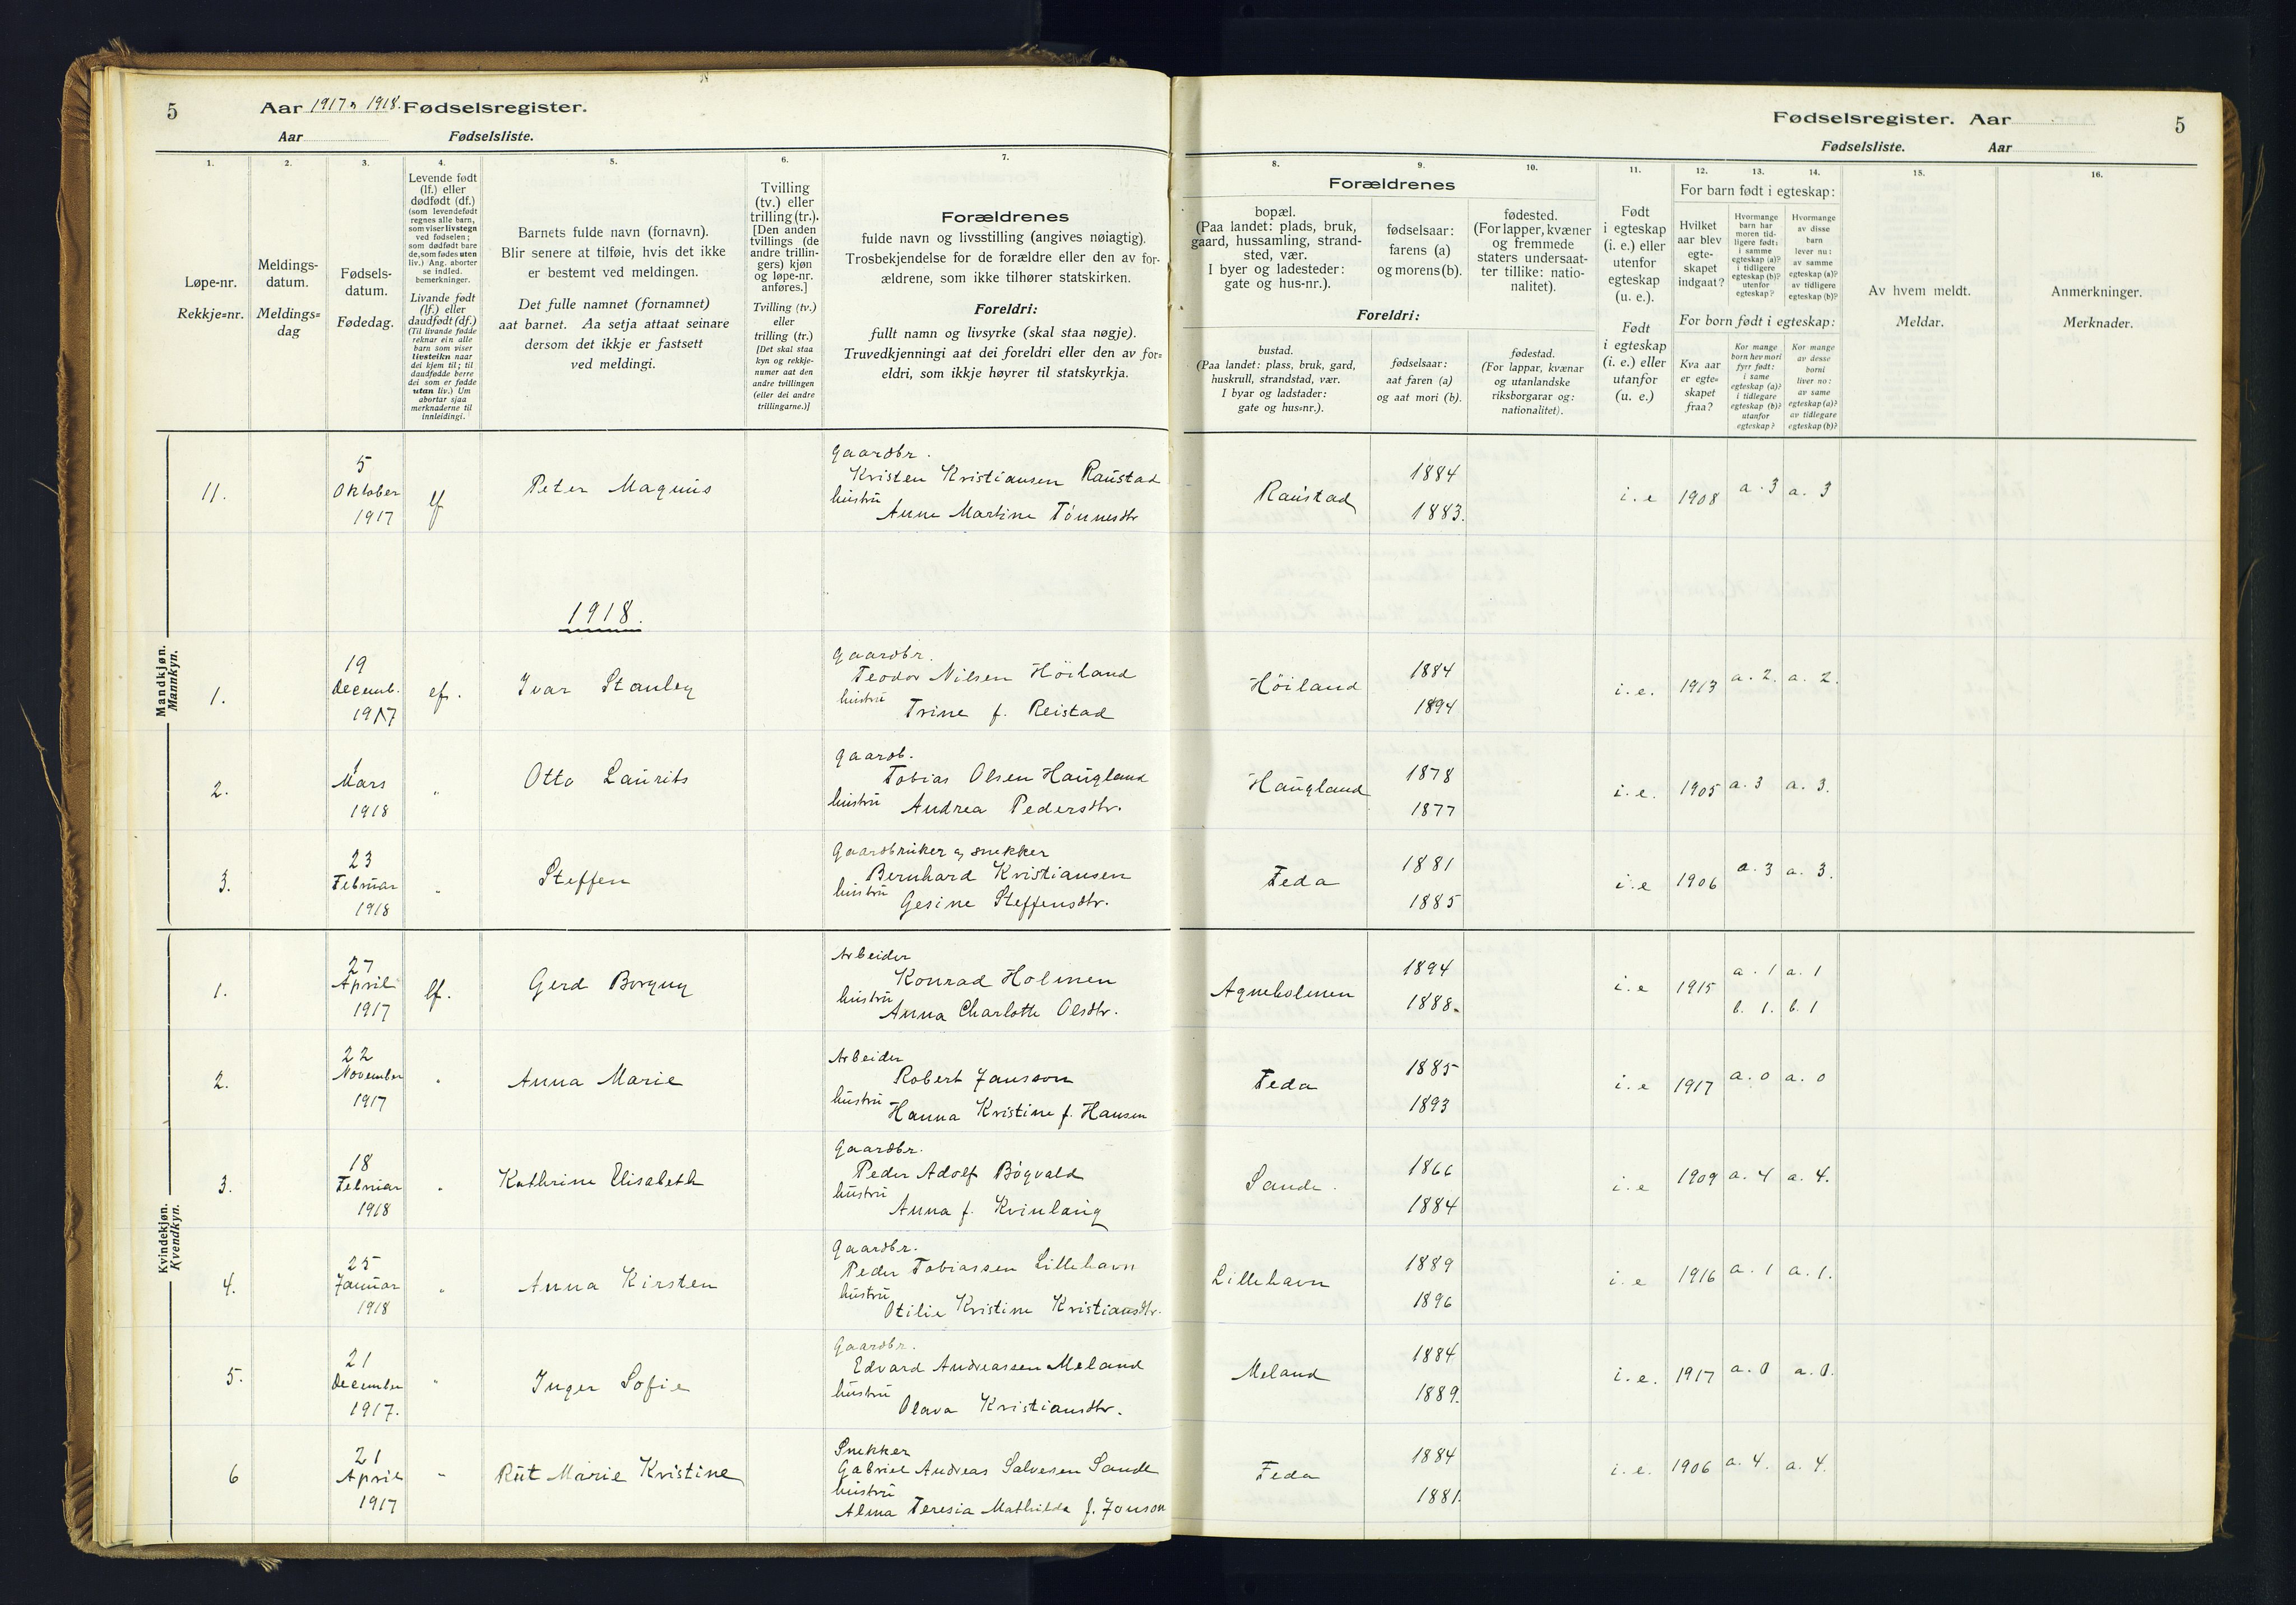 5
Aar 1917 & 1918. Fødselsregister.
Aar Fødselsliste.
1.
2.
3.
4.
5.
6.
7.
Løpe-nr.
Rekkje=nr.
Meldings-
datum.
Meldings=
dag
Fødsels-
datum.
Fødedag.
Levende født
(lf.) eller
dødfødt (df.)
(som levendefødt
regnes alle barn,
som viser livstegn
ved fødselen;
som dødfødt bare
de, som fødes uten
liv.) Ang. aborter
se indled.
bemerkninger.
Livande født
(lf.) eller
daudfødt (df.)
(Til livande fødde
reknar ein alle
barn som viser
livsteikn naar
dei kjem til; til
daudfødde berre
dei som er fødde
utan liv.) Um
abortar sjaa
merknaderne til
innleidingi.
Barnets fulde navn (fornavn).
Blir senere at tilføie, hvis det ikke
er bestemt ved meldingen.
Det fulle namnet (fornamnet)
aat barnet. Aa setja attaat seinare
dersom det ikkje er fastsett
ved meldingi.
Tvilling
(tv.) eller
trilling (tr.).
[Den anden
tvillings (de
andre trillin-
gers) kjøn
og løpe-nr.
anføres.]
Tvilling (tv.)
eller
trilling (tr.)
[Det skal staa
kyn og rekkje-
numer aat den
andre tvillingen
(eller dei andre
trillingarne.)]
Forældrenes
fulde navn og livsstilling (angives nøiagtig).
Trosbekjendelse for de forældre eller den av for-
ældrene, som ikke tilhører statskirken.
Foreldri:
fullt namn og livsyrke (skal staa nøgje).
Truvedkjenningi aat dei foreldri eller den av for=
eldri, som ikkje høyrer til statskyrkja.
Fødselsregister. Aar
5
Fødselsliste. Aar
8.
9.
10.
11.
12.
13.
14.
15.
16.
Forældrenes
bopæl.
(Paa landet: plads, bruk,
gaard, hussamling, strand-
sted, vær.
I byer og ladesteder:
gate og hus-nr.).
fødselsaar:
farens (a)
og morens (b).
fødested.
(For lapper, kvæner
og fremmede
staters undersaat-
ter tillike: natio-
nalitet).
Foreldri:
bustad.
(Paa landet: plass, bruk, gard,
huskrull, strandstad, vær.
I byar og ladstader:
gate og hus=nr.).
fødselsaar:
aat faren (a)
og aat mori (b).
fødestad.
(For lappar, kvænar
og utanlandske
riksborgarar og:
nationalitet).
Født
i egteskap
(i. e.) eller
utenfor
egteskap
(u. e.).
Født
i egteskap
(i. e.) eller
utanfor
(u. e.)
For barn født i egteskap:
Hvilket
aar blev
egte-
skapet
indgaat?
Hvormange
barn har
moren tid-
ligere født:
i samme
egteskap (a)?
i tidligere
egteskap (b)?
utenfor
egteskap?
Hvormange
av disse
barn
lever nu:
av samme
egteskap (a)?
av tidligere
egteskap (b)?
For born født i egteskap:
Kva aar
er egte=
skapet
fraa?
Kor mange
born hev mori
fyrr født:
i same
egteskap (a)?
i tidlegare
egteskap (b)?
utanfor
egteskap?
Kor mange
av desse
borni
liver no:
av same
egteskap (a)?
av tidlegare
egteskap (b)?
Av hvem meldt.
Meldar.
Anmerkninger.
Merknader.
Mandkjøn.
Mannkyn.
11. 5 Oktober 1917 lf Peter Magnus
gaardbr.
Kristen Kristiansen Raustad
hustru
Anne Martine Tönnesdtr
Raustad 1884 1883. i. e 1908 a. 3 a. 3
1918.
1. 19 Decemb. 1917 lf. Ivar Stanley
gaardbr.
Teodor Nilsen Höiland
hustru
Trine f. Reistad
Höiland 1884 1894 i. e. 1913 a. 2. a. 2.
2. 1 Mars 1918 " Otto Laurits
gaardb.
Tobias Olsen Haugland
hustru Andrea Pedersdtr.
Haugland 1878 1877 i. e. 1905 a. 3 a. 3.
3. 23 Februar 1918 " Steffen
Gaardbruker og snekker
Bernhard Kristiansen
hustru
Gesine Steffensdtr.
Feda 1881 1885 i. e 1906 a. 3 a. 3.
Kvindekjøn.
Kvendkyn.
1. 27 April 1917 lf. Gerd Borguy
Arbeider
Konrad Holmen
hustru
Anna Charlotte Olsdtr.
Agneholmen 1894 1888. i. e 1915 a. 1 a. 1
b. 1. b. 1
2. 22 November 1917 " Anna Marie
Arbeider
Robert Jansson
hustru
Hanna Kristine f. Hansen
Feda 1885 1893 i. e 1917 a. 0 a. 0
3. 18 Februar 1918 " Kathrine Elisabeth
gaardbr.
Peder Adolf Bögvald
hustru
Anna f. Kvinlaug
Sande. 1866 1884 i. e 1909 a. 4 a. 4.
4. 25 Januar 1918 " Anna Kirsten
gaardbr.
Peder Tobiassen Lillehavn
hustru
Otilie Kristine Kristiansdtr.
Lillehavn 1889 1896 i. e 1916 a. 1 a. 1.
5. 21 December 1917. " Inger Sofie
gaardbr.
Edvard Andreassen Meland
hustru
Olava Kristiansdtr.
Meland 1884 1889. i. e. 1917 a. 0 a. 0.
6 21 April 1917 " Rut Marie Kristine
Snekker
Gabriel Andreas Salvesen Sande
hustru
Alma Teresia Mathilde f. Jonson
Feda 1884 1881. i. e. 1906 a. 4. a. 4.